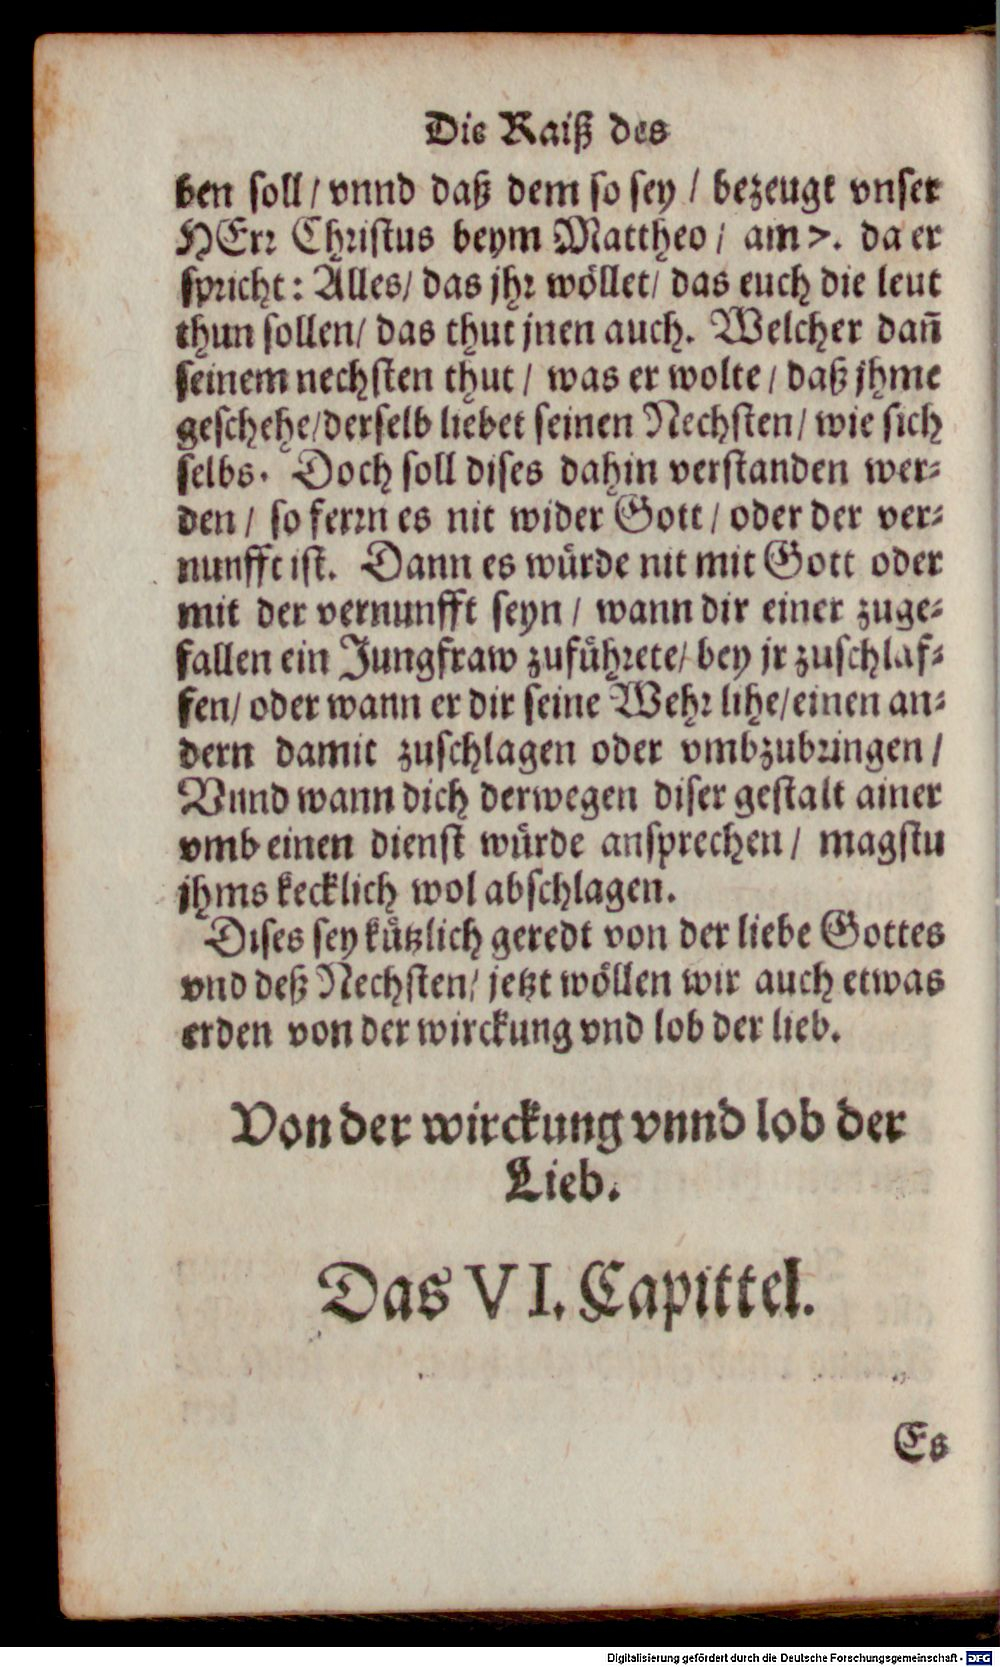 Die Raiß des
ben soll / vnnd daß dem so sey / bezeugt vnser
HErr Christus beym Mattheo / am 7. da er
spricht: Alles / das jhr wöllet / das euch die leut
thun sollen / das thut jnen auch. Welcher dañ
seinem nechsten thut / was er wolte / daß jhme
geschehe / derselb liebet seinen Nechsten / wie sich
selbs. Doch soll dises dahin verstanden wer⸗
den / so ferrn es nit wider Gott / oder der ver⸗
nunfft ist. Dann es würde nit mit Gott oder
mit der vernunfft seyn / wann dir einer zuge⸗
fallen ein Jungfraw zuführete / bey jr zuschlaf⸗
fen / oder wann er dir seine Wehr lihe / einen an⸗
dern damit zuschlagen oder vmbzubringen /
Vnnd wann dich derwegen diser gestalt ainer
vmb einen dienst würde ansprechen / magstu
jhms kecklich wol abschlagen.
Dises sey kützlich geredt von der liebe Gottes
vnd deß Nechsten / jetzt wöllen wir auch etwas
erden von der wirckung vnd lob der lieb.
Von der wirckung vnnd lob der
Lieb.
Das VI. Capittel.
Es
Digitalisierung gefördert durch die Deutsche Forschungsgemeinschaft - DFG